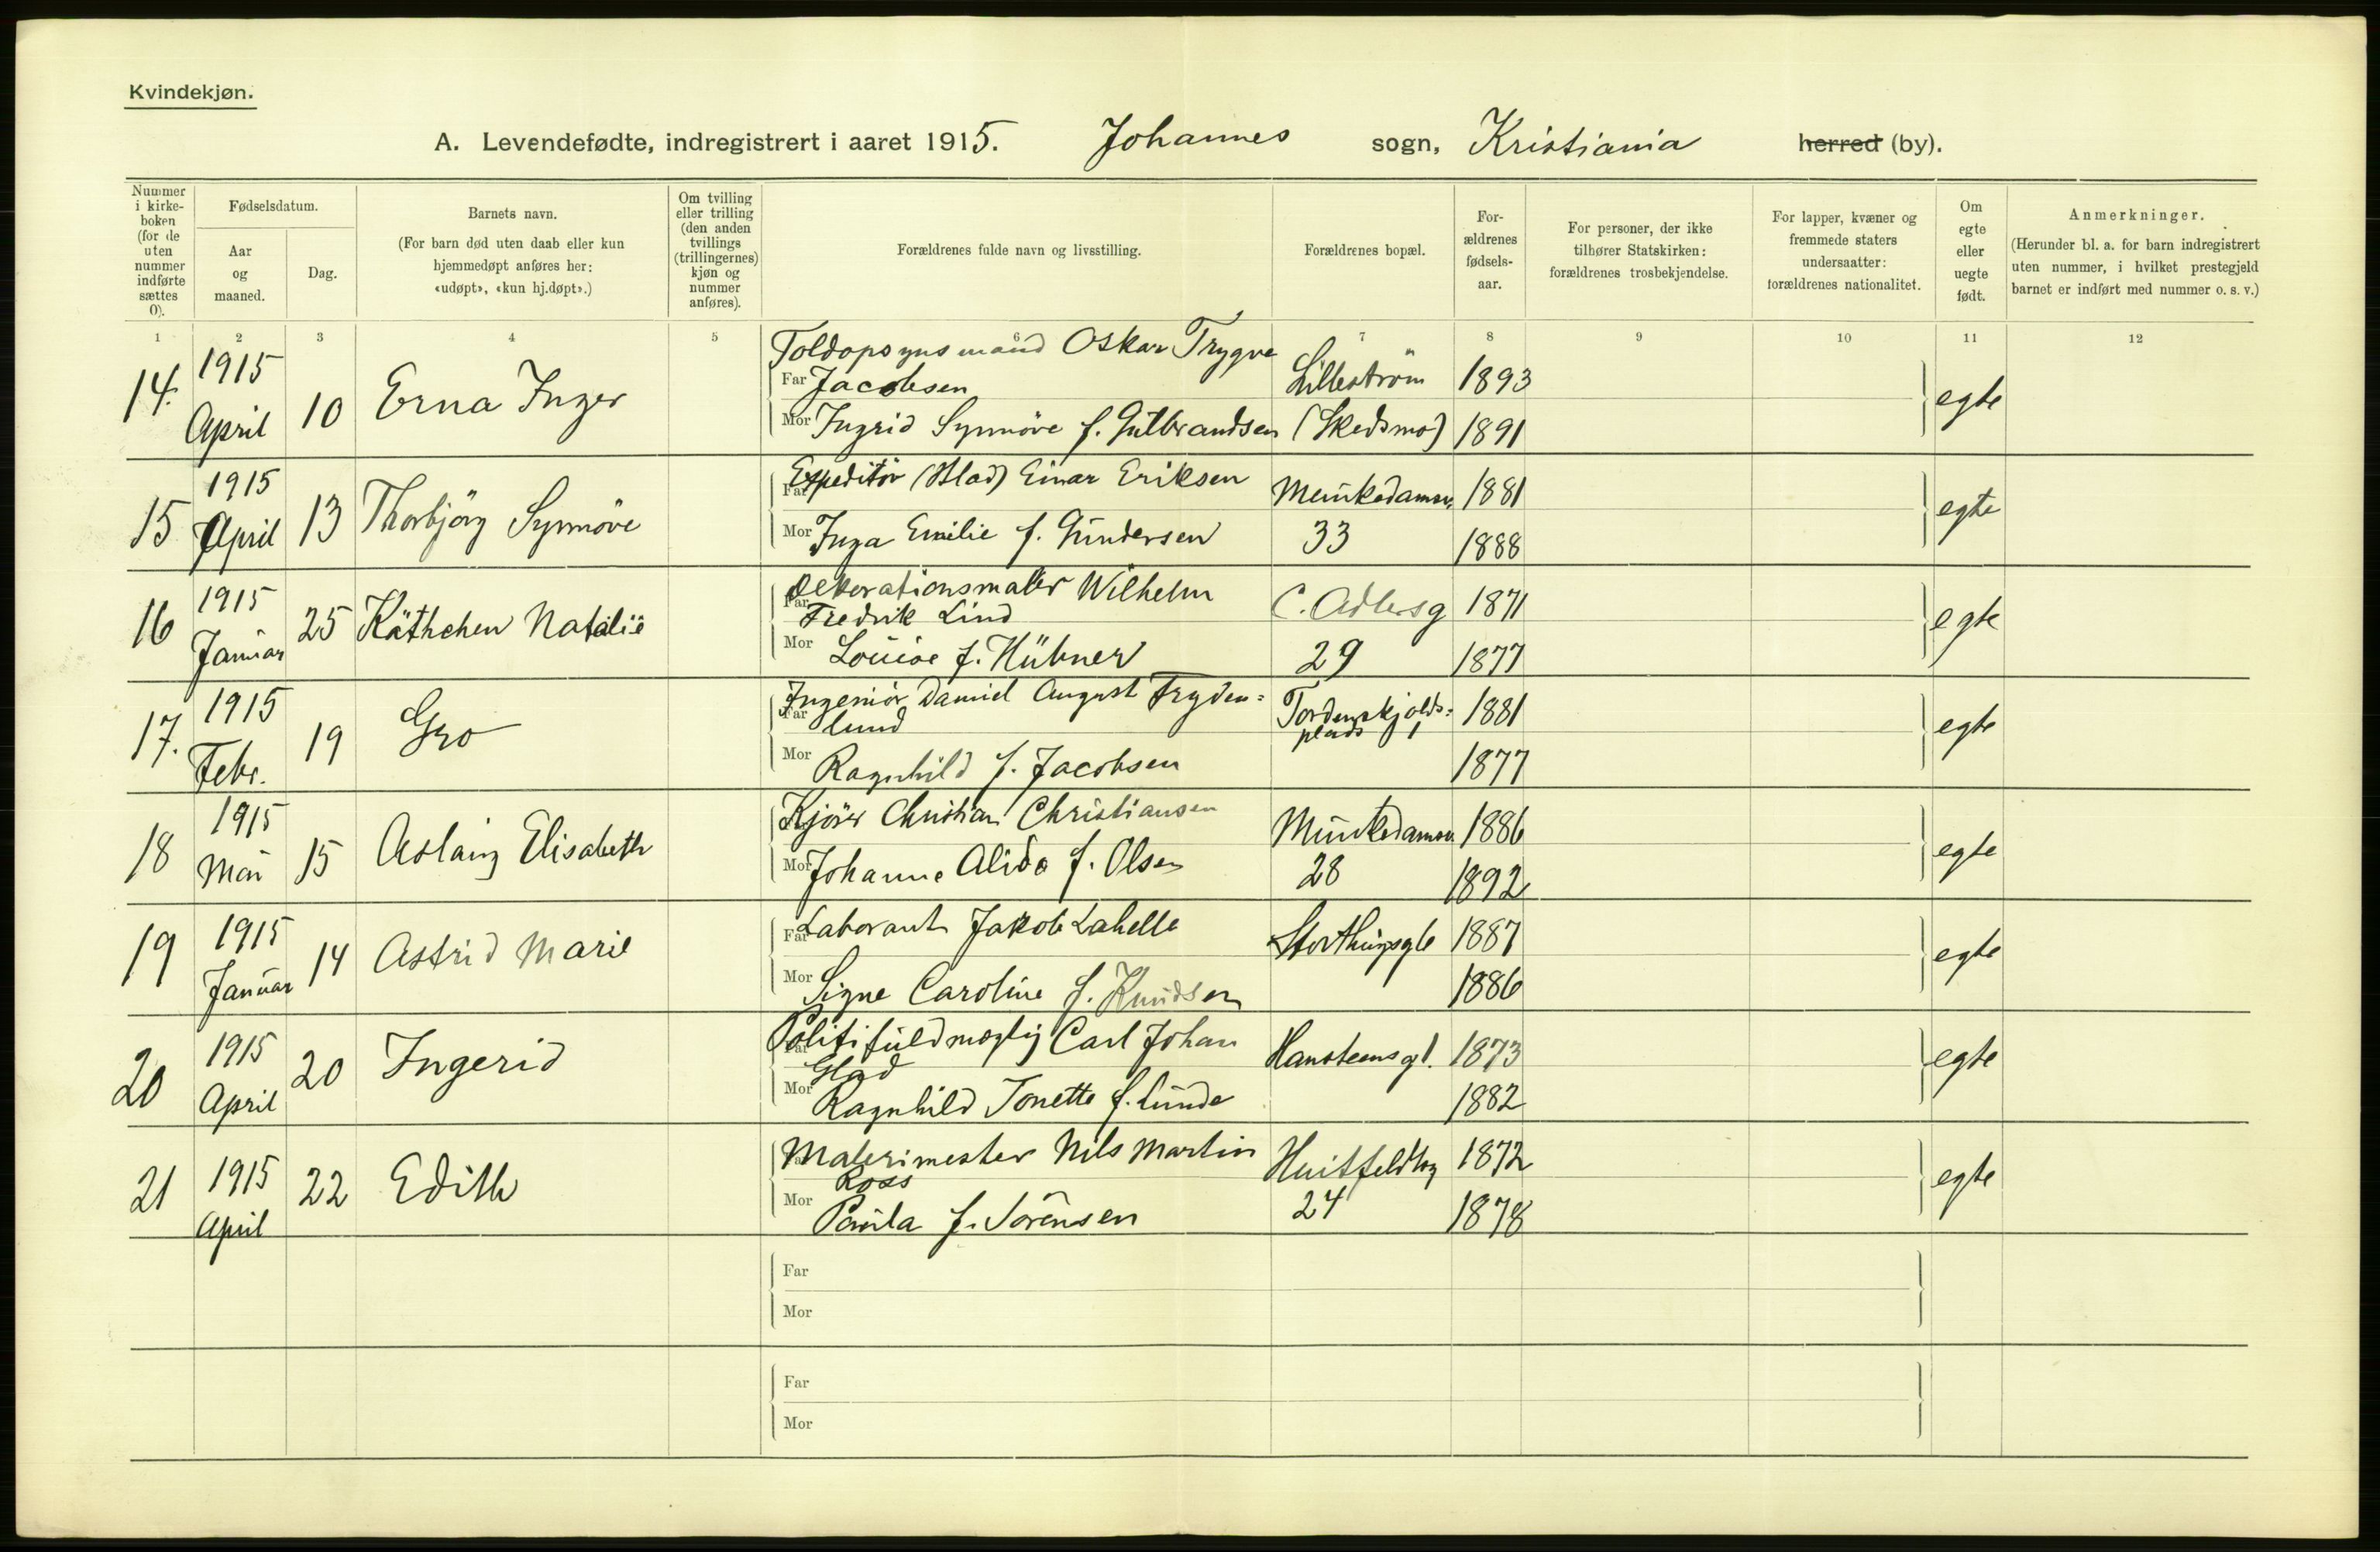 Kvindekjøn.
A. Levendefødte, indregistrert i aaret 1915. Johannes sogn, Kristiania herred (by).
Nummer i kirke-boken (for de uten nummer indførte sættes 0).
Fødselsdatum.
Aar og maaned.
Dag.
Barnets navn.
(For barn død uten daab eller kun hjemmedøpt anføres her: «udøpt», «kun hj.døpt».)
Om tvilling eller trilling (den anden tvillings (trillingernes) kjøn og nummer anføres).
Forældrenes fulde navn og livsstilling.
Forældrenes bopæl.
For-ældrenes fødsels-aar.
For personer, der ikke tilhører Statskirken: forældrenes trosbekjendelse.
For lapper, kvæner og fremmede staters undersaatter: forældrenes nationalitet.
Om egte eller uegte født.
Anmerkninger.
(Herunder bl. a. for barn indregistrert uten nummer, i hvilket prestegjeld barnet er indført med nummer o. s. v.)
1 2 3 4 5 6 7 8 9 10 11 12
14. 1915 April 10 Erna Inger
Toldopsynsmand Oskar Trygve
Far Jacobsen Lilleström 1893
Mor Ingrid Synnöve f. Gulbrandsen (Skedsmo) 1891
egte
15 1915 April 13 Thorbjörg Synnöve
Far Expeditör (Blad) Einar Eriksen Munkedamsv. 1881
Mor Inga Emilie f. Gundersen 33 1888
egte
16 1915 Januar 25 Käthchen Natalie
Dekorationsmaler Wilhelm
Far Fredrik Lind C. Adlersg 1871
Mor Louise f. Hübner 29 1877
egte
17. 1915 Febr. 19 Gro
Ingeniör Daniel August Fryden=
Far lund Tordenskjolds=plads 1 1881
Mor Ragnhild f. Jacobsen 1877
egte
18 1915 Mai 15 Aslaug Elisabeth
Kjörer Christian Christiansen Munkedamsv. 1886
Mor Johanne Alida f. Olsen 28 1892
egte
19 1915 Januar 14 Astrid Marie
Far Laborant Jakob Lahelle Storthingsg 6 1887
Mor Signe Caroline f. Knudsen 1886
egte
20 1915 April 20 Ingerid
Politifuldmægtig Carl Johan
Far Glad Hansteensg 1. 1873
Mor Ragnhild Tonette f. Lunde 1882
egte
21 1915 April 22 Edith
Malermester Nils Martin
Far Ross Huitfeldtsg 1872
Mor Paula f. Sörensen 24 1878
egte
Far
Mor
Far
Mor